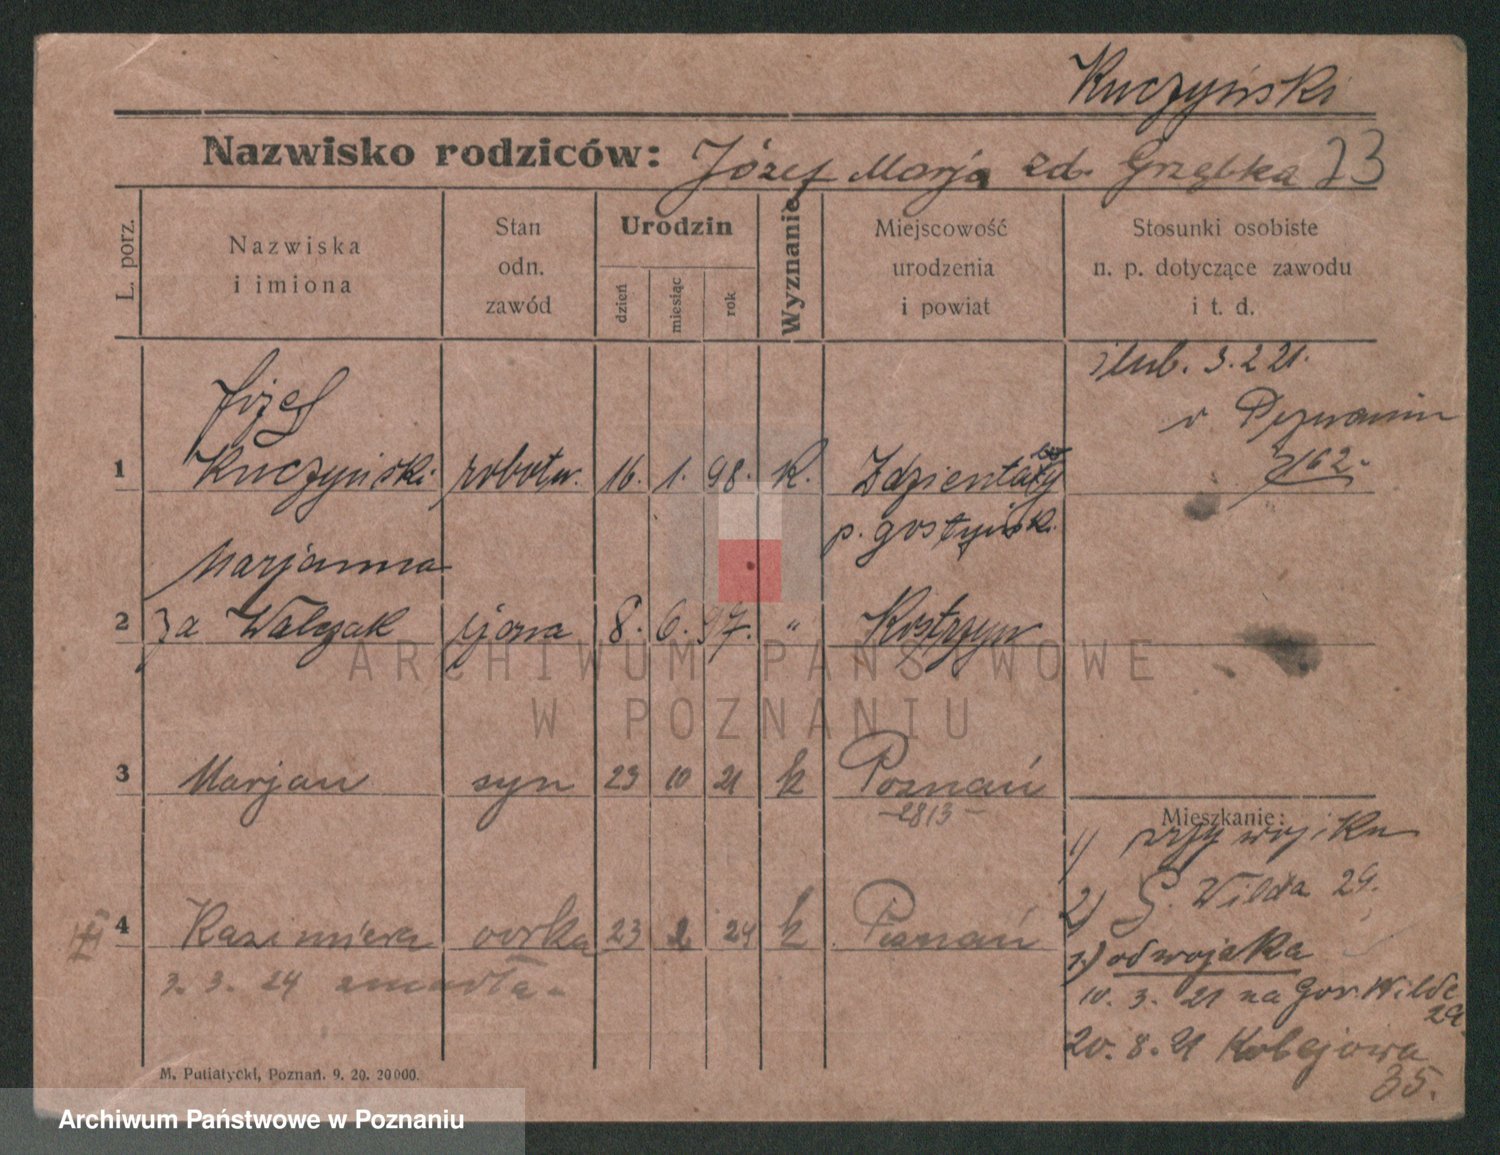 Kuczyński
Nazwisko rodziców: Józef Marja zd. Grząbka 23
L. porz.
Nazwiska
i imiona
Stan
odn.
zawód
Urodzin
dzień
miesiąc
rok
Wyznanie
Miejscowość
urodzenia
i powiat
Stosunki osobiste
n. p. dotyczące zawodu
i t. d.
ślub. 3.2.21.
w Poznaniu
762.
Józef
1 Kuczyński robotn. 16. 1. 98. K.
p. gostyńsk.
Marjanna
2 za Walczak żona 8. 6. 97. " Kostrzyn
3 Marjan syn 23 10 21 k Poznań
-2813-
4 Kazimiera córka 23 2 24 k Poznań
3. 3. 24 zmarła -
Mieszkanie:
1) przy wojsku
2) G. Wilda 29.
1) od wojska
10. 3. 21 na Gór. Wilde
29.
20. 8. 21 Kolejowa
35.
M. Putiatycki, Poznań. 9. 20. 20000.
ARCHIWUM PAŃSTWOWE
W POZNANIU
Archiwum Państwowe w Poznaniu